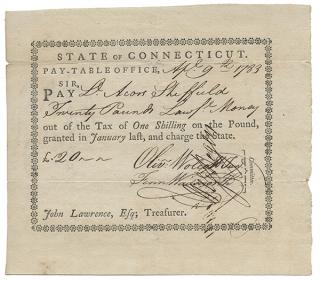 STATE OF CONNECTICUT.
PAY-TABLE OFFICE, Apl 9th 1783
SIR,
PAY Dr Acors Sheffield
Twenty Pounds Lawfl Money
out of the Tax of One Shilling on the Pound,
granted in January last, and charge the State.
£20
Olivr Wolcott
Fenn Wadsworth
Committee.
John Lawrence, Esq; Treasurer.